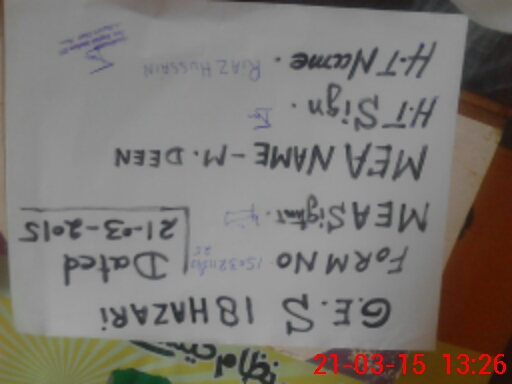 G.E.S 18 HAZARi
FORM NO
Dated
21-03-2015
MEA Sight
MEA NAME - M. DEEN
H.T Sign.
H.T Name. RIAZ HUSSAIN
21-03-15 13:26